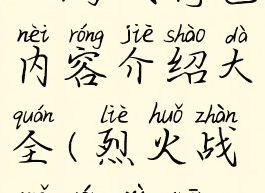 nèi róng jiè shào dà
内容介绍大
quán liè huǒ zhàn
全(烈火战